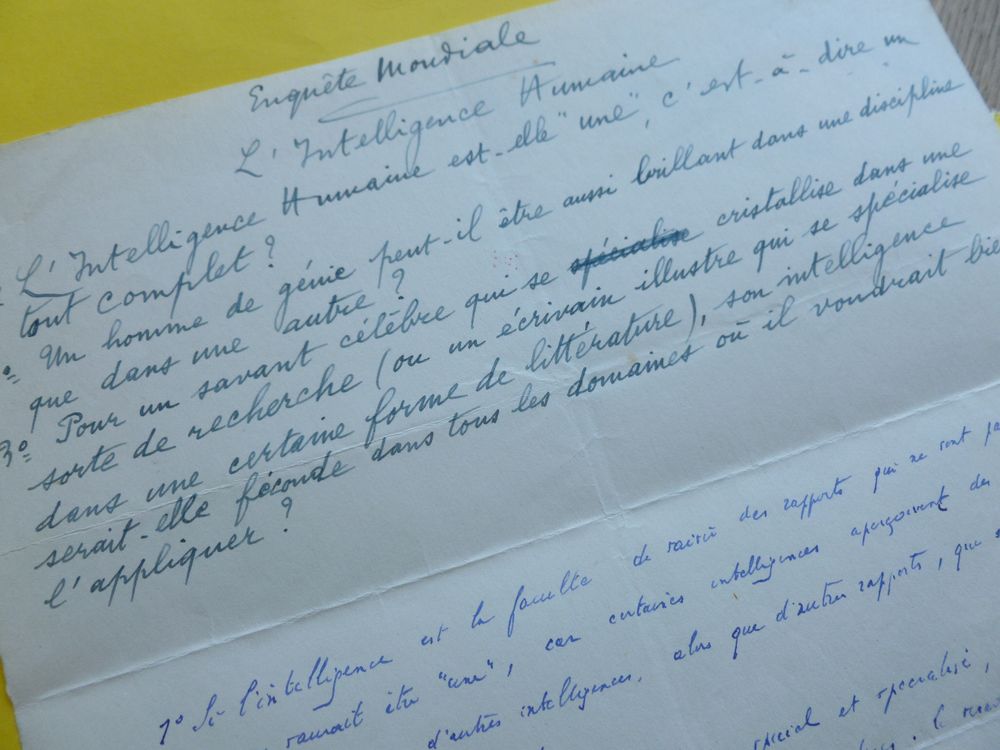 Enquête Mondiale
L'Intelligence Humaine
L'Intelligence Humaine est-elle "une", c'est-à-dire un
tout complet ?
Un homme de génie peut-il être aussi brillant dans une discipline
que dans une autre ?
3º Pour un savant célèbre qui se spécialise cristallise dans une
sorte de recherche (ou un écrivain illustre qui se spécialise
dans une certaine forme de littérature), son intelligence
serait-elle féconde dans tous les domaines où il voudrait bie
l'appliquer ?
1º Si l'intelligence est la faculté de saisir des rapports qui ne sont pa
saurait être "une", car certaines intelligences aperçoivent des
d'autres intelligences, alors que d'autres rapports, que
spécial et spécialisé,